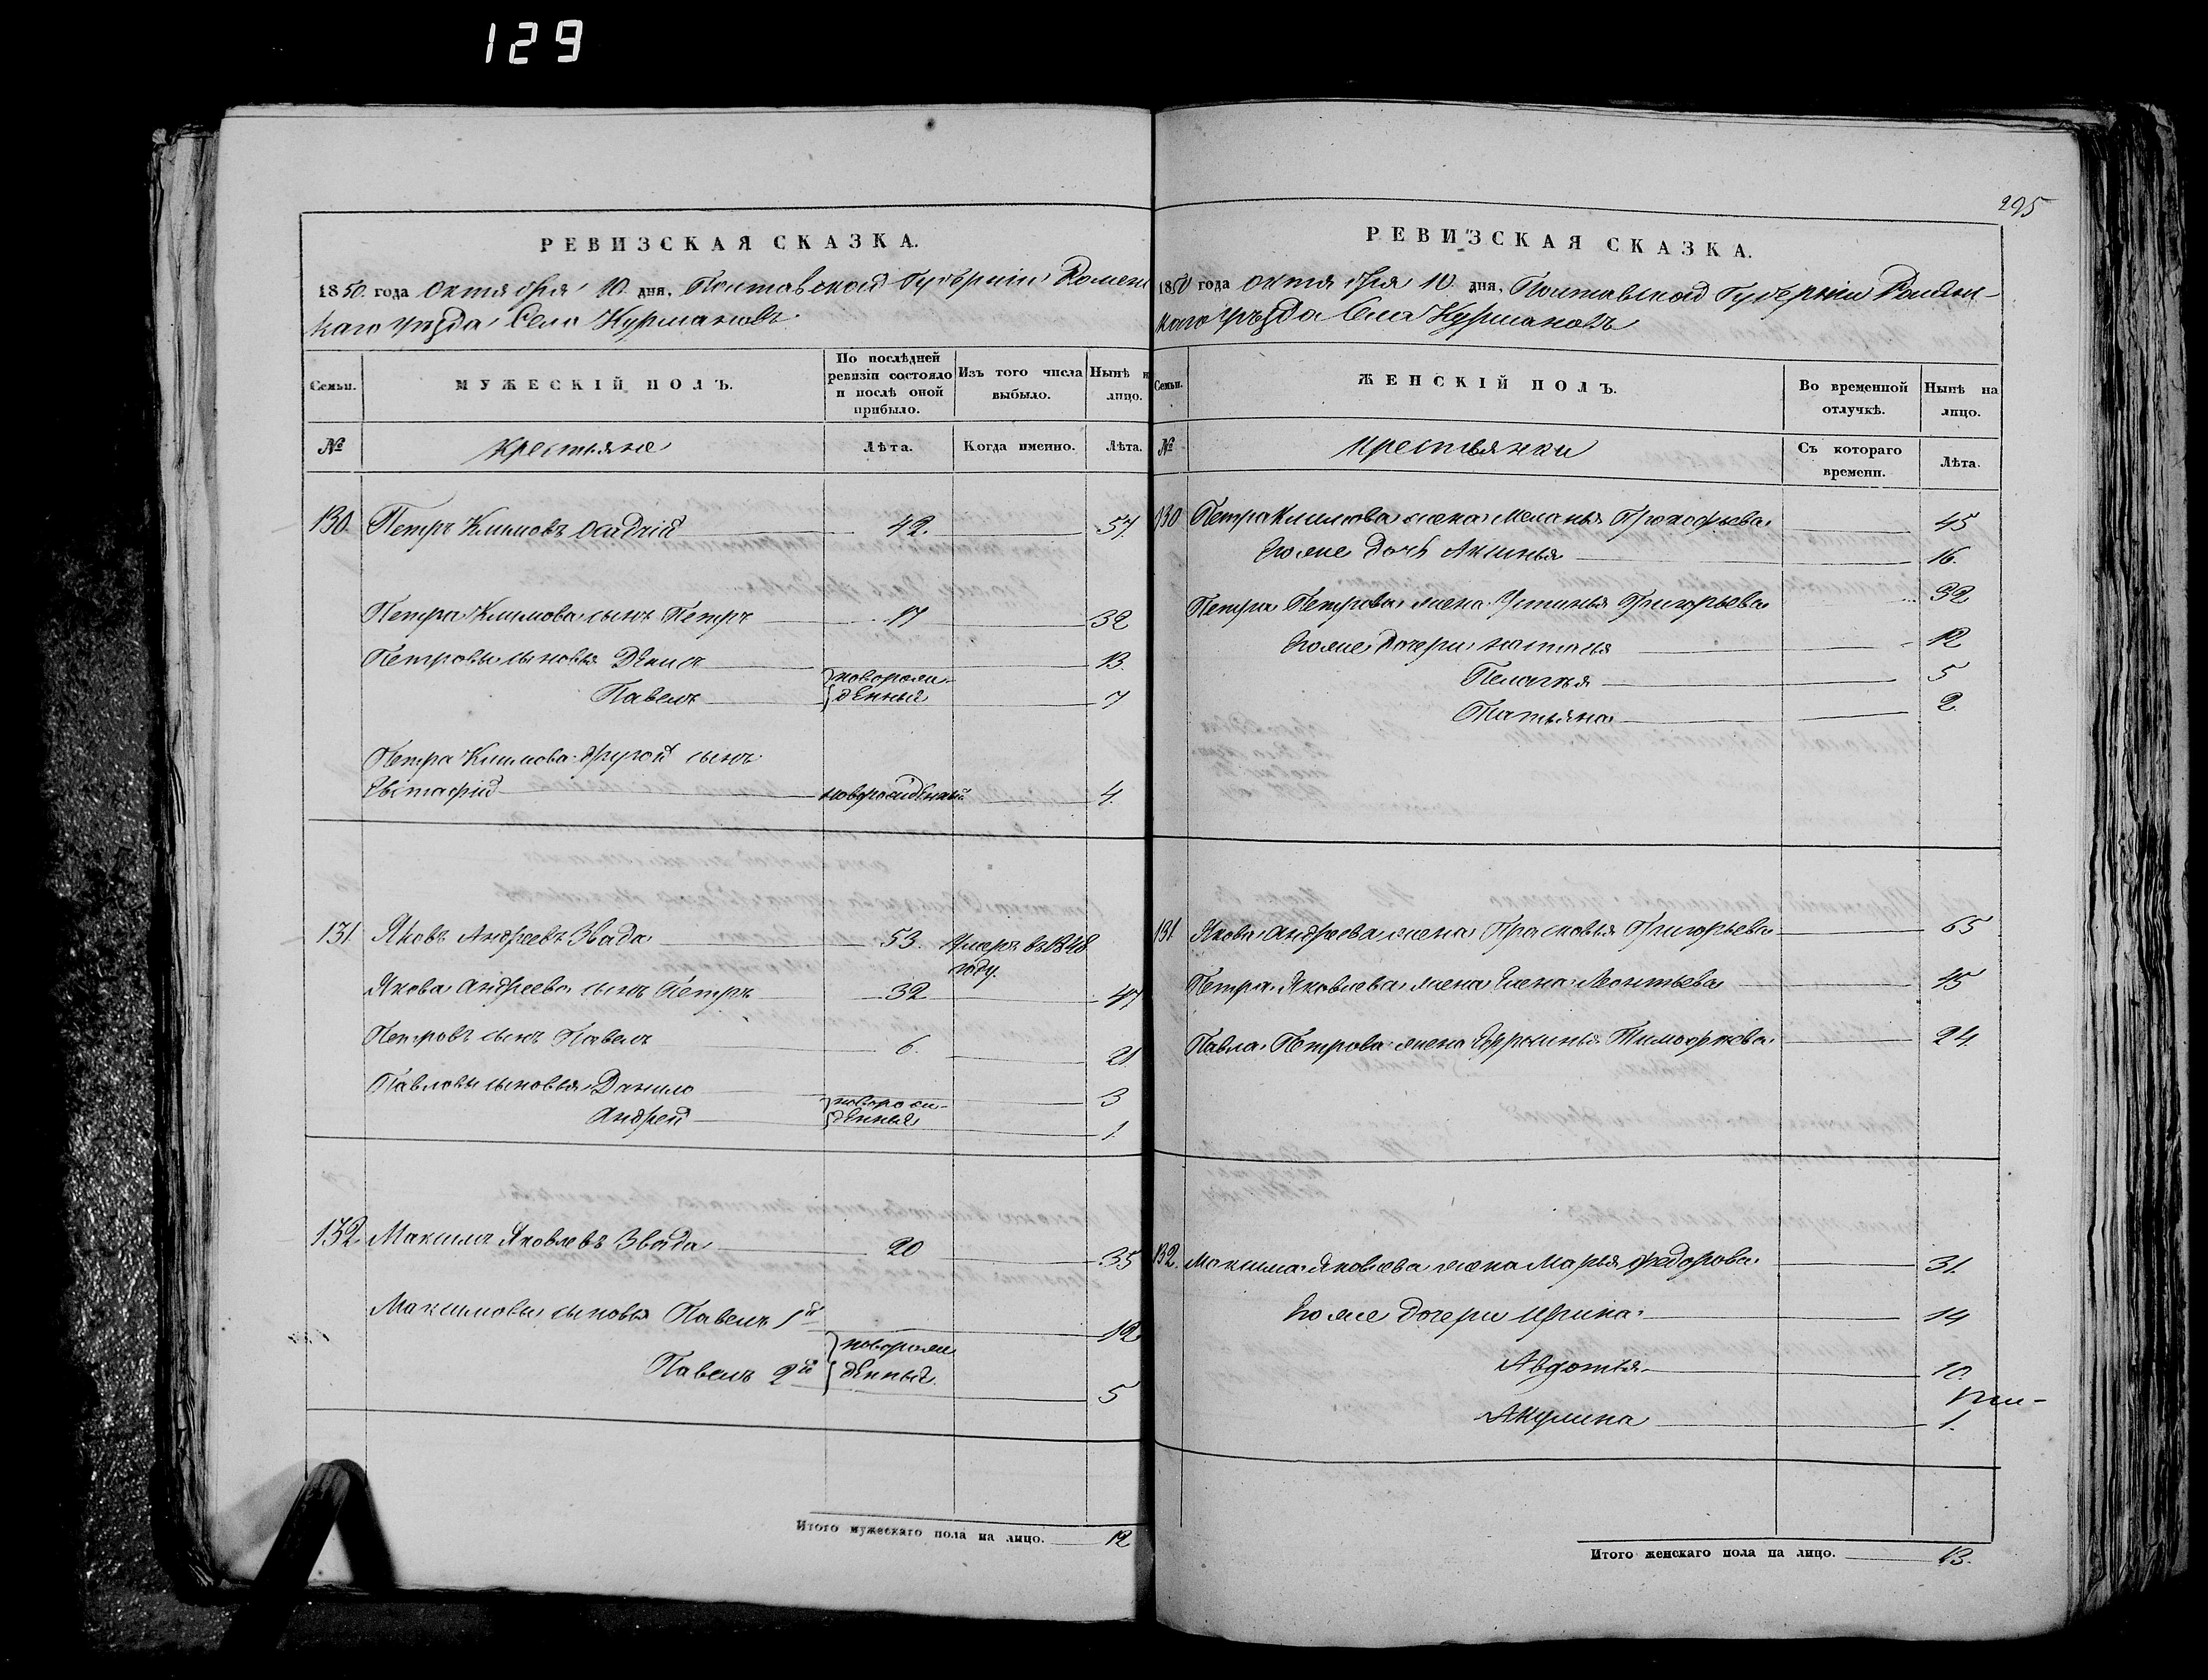 129
РЕВИЗСКАЯ СКАЗКА.
1850 года Октября 10 дня, Полтавской Губерніи Ромен
каго уѣзда Села Курмановъ
Семьи.
МУЖЕСКІЙ ПОЛЪ.
По послѣдней ревизіи состояло и послѣ оной прибыло.
Изъ того числа выбыло.
Нынѣ н лицо.
№
крестьяне
Лѣта.
Когда именно.
Лѣта.
130. Петръ Климовъ 42. 57.
Петра Климова сынъ Петръ 17 32
Петровы сыновья Денисъ 13.
новорож-
Павелъ денные 7
Петра Климова другой сынъ
Евстафій новорожденный 4.
131. Яковъ Андреевъ Звада 53. Умеръ въ 1848
году.
Якова Андреева сынъ Петръ 32 47
Петровъ сынъ Павелъ 6. 21
Павловы сыновья Данило 3
новорож-
Андрей денные 1.
132. Максимъ Яковлевъ Звада 20 35
Максимовы сыновья Павелъ 1й 12
новорож
Павелъ 2й денные. 5
Итого мужескаго пола на лицо. 12
295
РЕВИЗСКАЯ СКАЗКА.
1850 года октября 10 дня, Полтавской Губерніи Ромен-
каго уѣзда Села Курмановъ
Семьи.
ЖЕНСКІЙ ПОЛЪ.
Во временной отлучкѣ.
Нынѣ на лицо.
№
крестьянки
Съ котораго времени.
Лѣта.
130 Петра Климова жена Меланья Прокофьева 45
Его же дочь Акинья 16.
Петра Петрова жена Устинья Григорьева 32
Его же дочери Настасья 12
Пелагея 5
Татьяна 2.
131 Якова Андреева жена Прасковья Григорьева 65
Петра Яковлева жена Елена Леонтьева 45
Павла Петрова жена Ефросинья Тимофеева 24.
132. Максима Яковлева жена Марья Федорова 31.
Его же дочери Ирина 14
Авдотья 10.
Акулина 1.
Итого женскаго пола на лицо. 13.